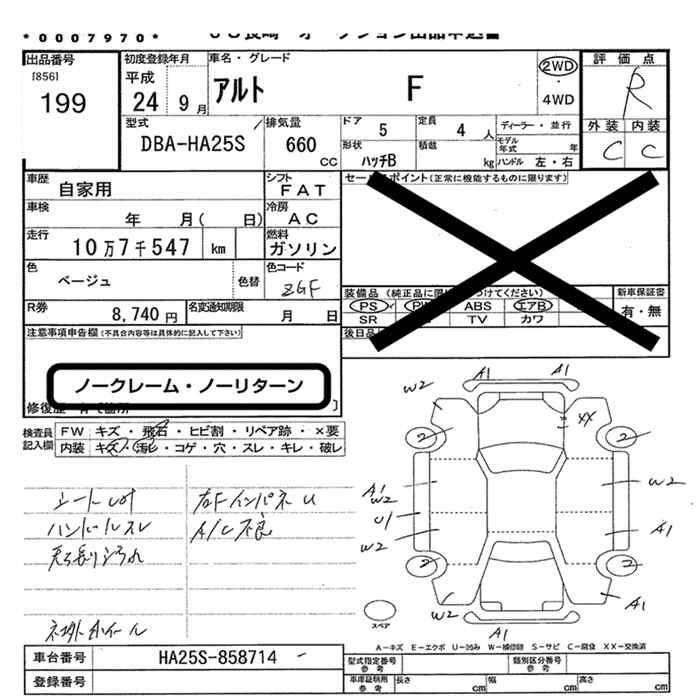 *0007970*
出品番号
[856]
199
初度登録年月
平成
24 9 月
車名・グレード
アルト F
2WD
・
4WD
評価点
R
外装 内装
C C
型式
DBA-HA25S
排気量
660
cc
ドア
5
定員
4 人
ディーラー・並行
モデル年式 年
形状
ハッチB
積載
kg
ハンドル 左・右
車歴
自家用
シフト
FAT
セールスポイント(正常に機能するものに限ります)
車検
年 月( 日)
冷房
AC
走行
10万7千547 km
燃料
ガソリン
色
ベージュ
色替
色コード
ZGF
装備品 (純正品に限
つけてください)
PS
ABS エアB
SR
TV カワ
新車保証書
有・無
後日品
R券
8,740 円
名変通知期限
月 日
注意事項申告欄(不具合内容等は具体的に記入して下さい)
ノークレーム・ノーリターン
検査員
記入欄
FW キズ・飛石・ヒビ割・リペア跡・×要
内装 キズ・汚れ・コゲ・穴・スレ・キレ・破レ
ハンドルスレ
天張り汚れ
右Fインパネ U
A/C不良
社外ホイール
W2
A1
A1
XX
2
2
A1
W2
U1
W2
W2
A1
2
2
W2
A1
A1
スペア
A-キズ E-エクボ U-凹み W-補修跡 S-サビ C-腐食 XX-交換済
車台番号
HA25S-858714
登録番号
型式指定番号
参考
類別区分番号
参考
車庫証明用
参考
長さ cm
幅 cm
高さ cm